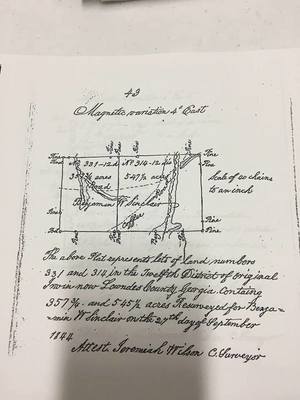 43
Magnetic variation 4° East
Pine
Pine
No 331-12 d
No 314-12 dis
Pine
357¾ acres
547½ acres
Pine
Scale of 20 chains
Road
to an inch
Benjamin W Sinclair
Pine
Pine
Pine
The above Plat represents lots of Land numbers
331 and 314, in the Twelfth District of original
Irwin now Lowndes County, Georgia. Containing
357¾ and 545½ acres Resurveyed for Benja=
min W Sinclair on the 27th day of September
1844
Attest. Jeremiah Wilson C. Surveyor